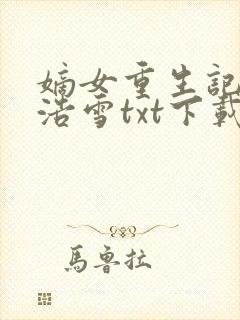 嫡女重生記
浩雪txt下載
馬魯拉